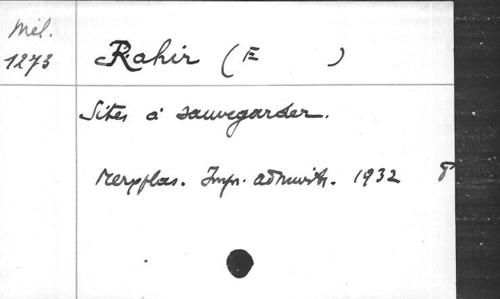 Mél.
1273
Rahir (E )
Sites à sauvegarder.
Merxplas. Impr. administr. 1932 8°